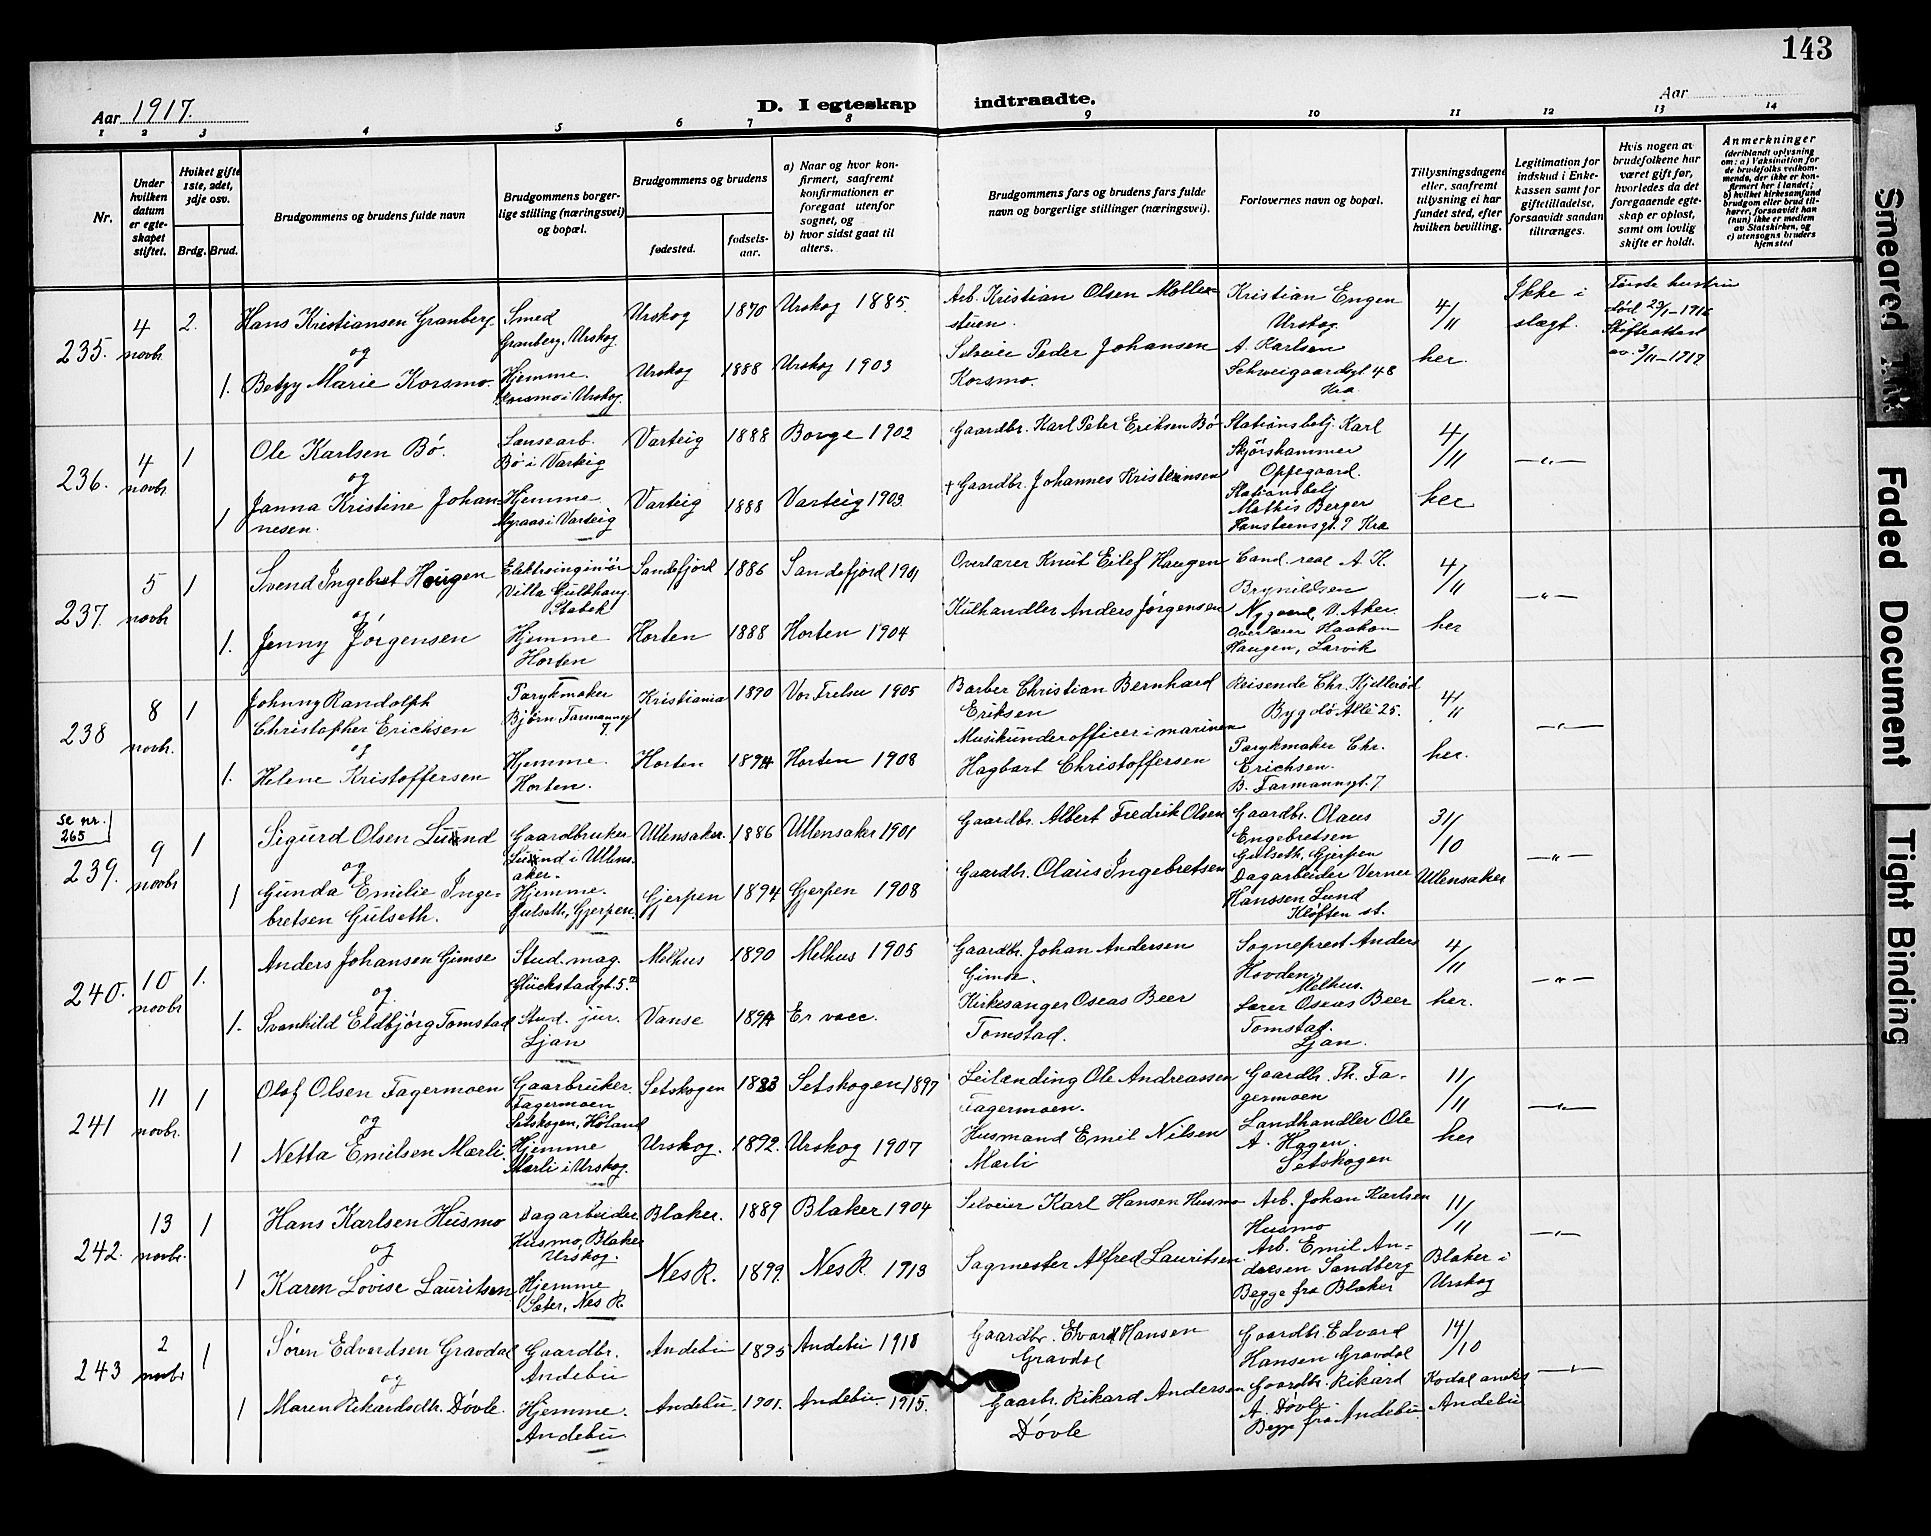 143
Aar 1917.
D. I egteskap indtraadte.
Aar
1 2 3 4 5 6 7 8 9 10 11 12 13 14
Nr.
Under hvilken datum er egteskapet stiftet.
Hvilket gifte 1ste, 2det, 3dje osv.
Brdg. Brud.
Brudgommens og brudens fulde navn
Brudgommens borgerlige stilling (næringsvei) og bopæl.
Brudgommens og brudens
fødested.
fødselsaar.
a) Naar og hvor konfirmert, saafremt konfirmationen er foregaat utenfor sognet, og
b) hvor sidst gaat til alters.
Brudgommens fars og brudens fars fulde navn og borgerlige stillinger (næringsvei).
Forlovernes navn og bopæl.
Tillysningsdagene eller, saafremt tillysning ei har fundet sted, efter hvilken bevilling.
Legitimation for indskud i Enkekassen samt for giftetilladelse, forsaavidt saadan tiltrænges.
Hvis nogen av brudefolkene har været gift før, hvorledes da det foregaaende egteskap er opløst, samt om lovlig skifte er holdt.
Anmerkninger
(deriblandt oplysning om: a) Vaksination for de brudefolks vedkommende, der ikke er konfirmert her i landet; b) hvilket kirkesamfund brudgom eller brud tilhører, forsaavidt han (hun) ikke er medlem av Statskirken, og c) utensogns bruders hjemsted
235. 4 novbr. 2. Hans Kristiansen Granberg Smed Granberg, Urskog Urskog 1870 Urskog 1885. Arb. Kristian Olsen Mollerstuen. Kristian Engen Urskog 4/11 Ikke i slægt. Første hustru død 23/1-1916 Skifteattest av. 3/11-1917
og
1. Betzy Marie Korsmo Hjemme. Korsmo i Urskog. Urskog 1888 Urskog 1903 Selveier Peder Johansen Korsmo. A. Karlsen Schweigaardsgt 48 Kra. her.
236. 4 novbr 1 Ole Karlsen Bø. Lansearb. Bø i Varteig Varteig 1888 Borge 1902 Gaardbr. Karl Peter Eriksen Bø Stationsbetj. Karl Skjørshammer Oppegaard. 4/11 —„—
og
1 Janna Kristine Johannesen. Hjemme Myraas i Varteig Varteig 1888 Varteig 1903. † Gaardbr. Johannes Kristensen Stationsbetj Mathis Berger Hansteensgt. 9 Kra her
237. 5 novbr 1 Svend Ingebret Haugen Elektroinginiør Villa Solhaug Stabek Sandefjord 1886 Sandefjord 1901 Overlærer Knut Eilef Haugen Cand. real A. K. Brynildsen Nygaard, V. Aker 4/11 —„—
og
1. Jenny Jørgensen Hjemme Horten Horten 1888 Horten 1904 Kulhandler Anders Jørgensen Overlærer Haakon Haugen, Larvik her
238 8 novbr. 1 Johnny Randolph Christopher Erichsen Parykmaker Bjørn Farmannsgt 7. Kristiania 1890 Vor Frelser 1905 Barber Christian Bernhard Eriksen Reisende Chr. Kjellerød Bygdø Alle 25. 4/11 —„—
og
1. Helene Kristoffersen Hjemme. Horten. Horten 1894 Horten 1908 Musikunderofficer i marinen Hagbart Christoffersen Parykmaker Chr. Erichsen. B. Farmannsgt. 7 her.
se nr. 265
239. 9 novbr 1 Sigurd Olsen Lund Gaardbruker Lund i Ullensaker. Ullensaker. 1886 Ullensaker 1901 Gaardbr. Albert Fredrik Olsen Gaardbr. Olaus Engebretsen Gulseth, Gjerpen 31/10 —„—
og
1 Gunda Emilie Ingebretsen Gulseth. Hjemme. Gulseth, Gjerpen. Gjerpen 1894 Gjerpen 1908 Gaardbr. Olaus Ingebretsen Dagarbeider Verner Hanssen Lund Kløften st. Ullensaker
240. 10 novbr 1. Anders Johansen Gimse Stud. mag. Glückstadgt. 5. Melhus 1890 Melhus 1905 Gaardbr. Johan Andersen Gimse. Sogneprest Anders Hovden, Melhus. 4/11 —„—
og
1. Svanhild Eldbjørg Tomstad Stud. jur. Ljan Vanse 1894 Er vacc. Kirkesanger Oseas Beer Tomstad. Lærer Oseas Beer Tomstad. Ljan. her.
241 11 novbr. 1 Olof Olsen Fagermoen Gaarbruker. Fagermoen Setskogen, Høland Setskogen 1883 Setskogen 1897 Leilending Ole Andreassen Fagermoen. Gaardbr. Th. Fagermoen 11/11 —„—
og
1 Netta Emilsen Mærli. Hjemme Mærli i Urskog. Urskog. 1892. Urskog 1907 Husmand Emil Nilsen Mærli Landhandler Ole A. Hagen. Setskogen her
242. 13 novbr. 1 Hans Karlsen Husmo Dagarbeider Husmo, Blaker Urskog. Blaker. 1889 Blaker 1904 Selveier Karl Hansen Husmo Arb. Johan Karlsen Husmo 11/11 —„—
og
1 Karen Lovise Lauritsen Hjemme Sæter, Nes R. Nes R. 1899. Nes R. 1913 Sagmester Alfred Lauritsen Arb. Emil Andersen Sandberg Begge fra Blaker Blaker i Urskog
243 2 novbr 1 Søren Edvardsen Gravdal Gaardbr. Andebu Andebu 1895 Andebu 1910 Gaardbr. Edvard Hansen Gravdal Gaardbr. Edvard Hansen Gravdal 14/10 —„—
og
1 Maren Rikardsdtr. Døvle. Hjemme. Andebu Andebu. 1901. Andebu 1915. Gaarbr. Rikard Andersen Døvle Gaardbr. Rikard A. Døvle. Begge fra Andebu. Kodal aneks Andebu
Smeared Ink
Faded Document
Tight Binding